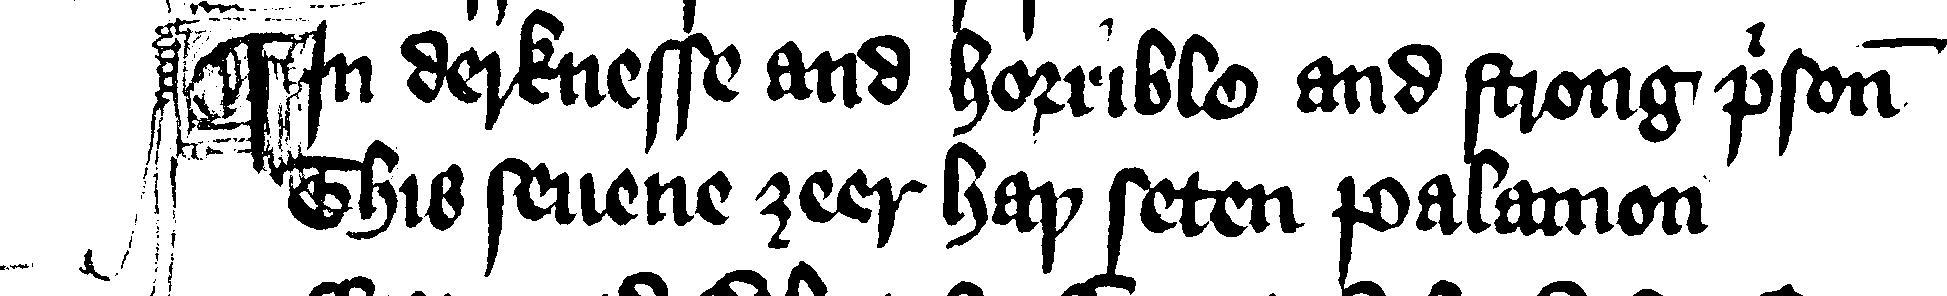 In derknesse and horrible and strong pͥson̄
This seuene ȝeer haþ seten Palamon